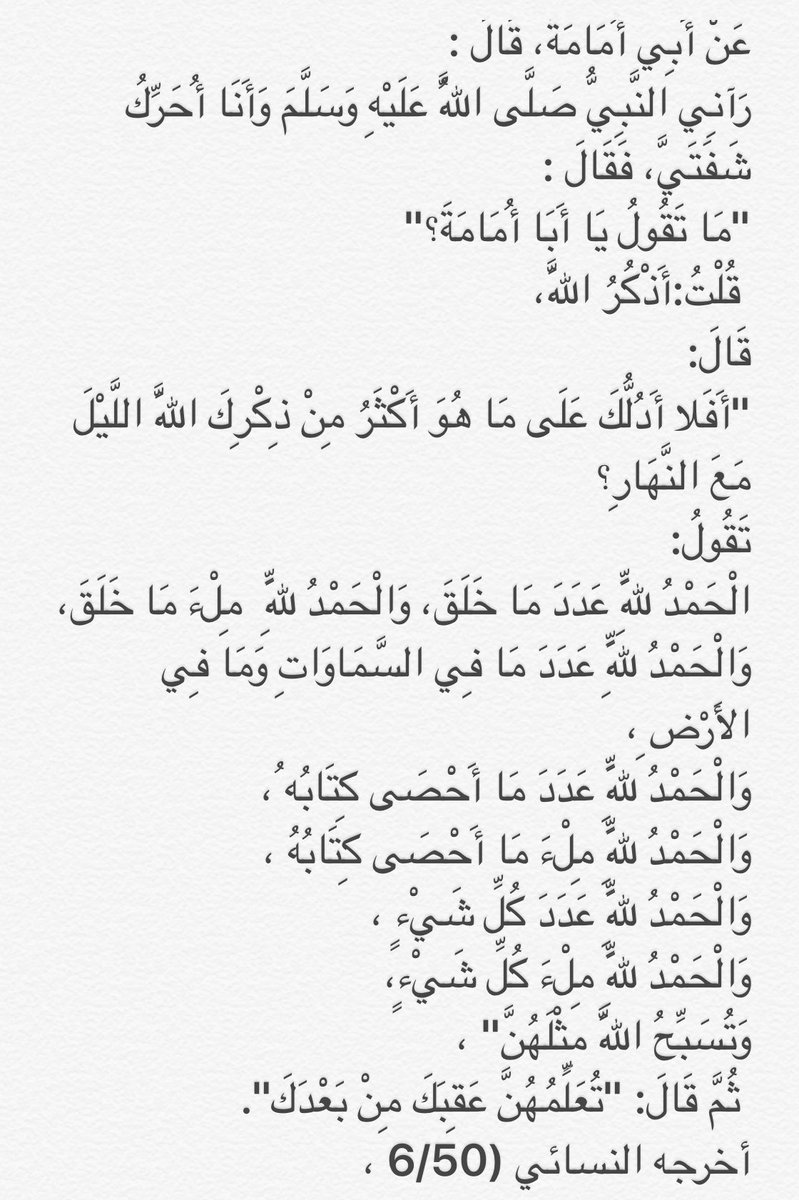 عَنْ أَبِي أُمَامَةَ، قَالَ :
رَآنِي النَّبِيُّ صَلَّى اللهُ عَلَيْهِ وَسَلَّمَ وَأَنَا أُحَرِّكُ
شَفَتَيَّ، فَقَالَ :
"مَا تَقُولُ يَا أَبَا أُمَامَةَ؟"
قُلْتُ:أَذْكُرُ اللهَ،
قَالَ:
"أَفَلا أَدُلُّكَ عَلَى مَا هُوَ أَكْثَرُ مِنْ ذِكْرِكَ اللهَ اللَّيْلَ
مَعَ النَّهَارِ؟
تَقُولُ:
الْحَمْدُ للهِ عَدَدَ مَا خَلَقَ، وَالْحَمْدُ للهِ مِلْءَ مَا خَلَقَ،
وَالْحَمْدُ للهِ عَدَدَ مَا فِي السَّمَاوَاتِ وَمَا فِي
الأَرْضِ ،
وَالْحَمْدُ للهِ عَدَدَ مَا أَحْصَى كِتَابُهُ ،
وَالْحَمْدُ للهِ مِلْءَ مَا أَحْصَى كِتَابُهُ ،
وَالْحَمْدُ للهِ عَدَدَ كُلِّ شَيْءٍ ،
وَالْحَمْدُ للهِ مِلْءَ كُلِّ شَيْءٍ،
وَتُسَبِّحُ اللهَ مِثْلَهُنَّ" ،
ثُمَّ قَالَ: "تُعَلِّمُهُنَّ عَقِبَكَ مِنْ بَعْدَكَ".
أخرجه النسائي (6/50 ،